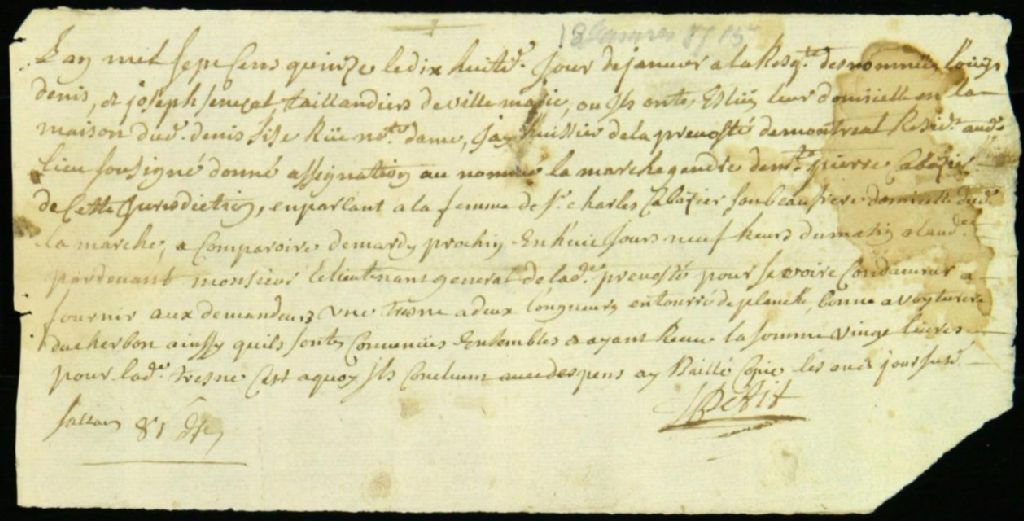 18 janvier 1715
Lan mil sept Cens quinze le dix huitte. Jour de janvier a la Req.te des nommés louys
denis, et joseph senecat, taillandiers de ville marie, ou ils ont Esleu leur domicille en la
maison dud. denis sise Rue n.re dame, J'ay huissier de la prevosté de montreal Resid. aud.
lieu sousigné donné assignation au nommé la marche gendre de m.re pierre Cabazié
de Cette Jurisdiction, en parlant a la femme de Sr. charles Cabazier son beau frere domicille dud.
la marche, a Comparoire de mardy prochin En huic Jours neuf heurs du matin a laud.ce
pardevant monsieur le lieutenant general de lad.e prevosté pour se voire Condamner a
fournir aux demandeurs une tresne a deux longueurs entourré de planche, bonne a voyturer
du cherbon ainssy quils sont Convenües Ensembles & ayant Receu la somme vingt livres
pour lad.e tresne Cest a quoy ils Concluent avec despens ay Baillé Copie les an et jour susd.
Petit